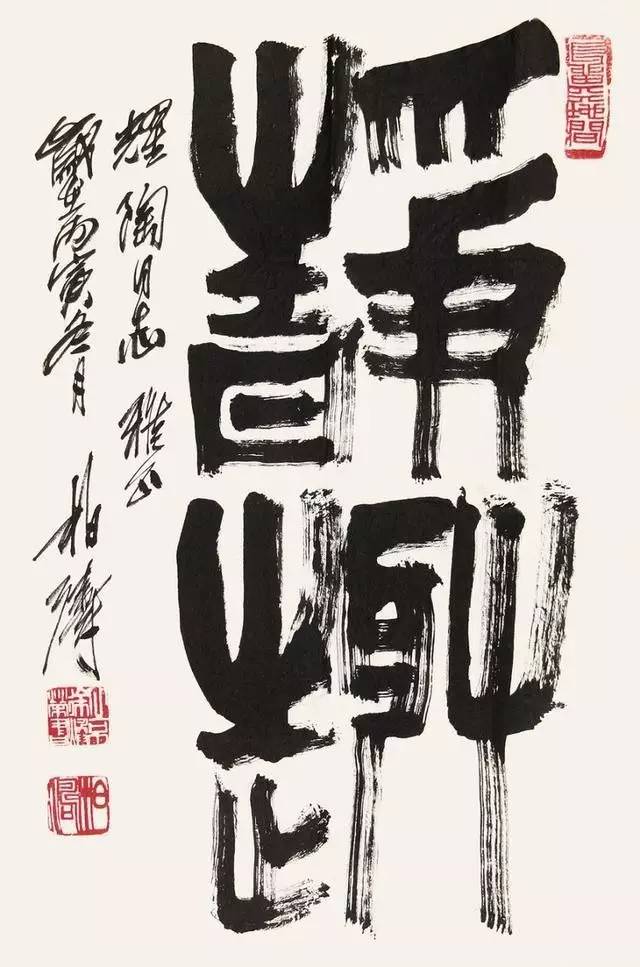 靜趣
耀陶同志 雅正
歲在丙寅冬月 柏